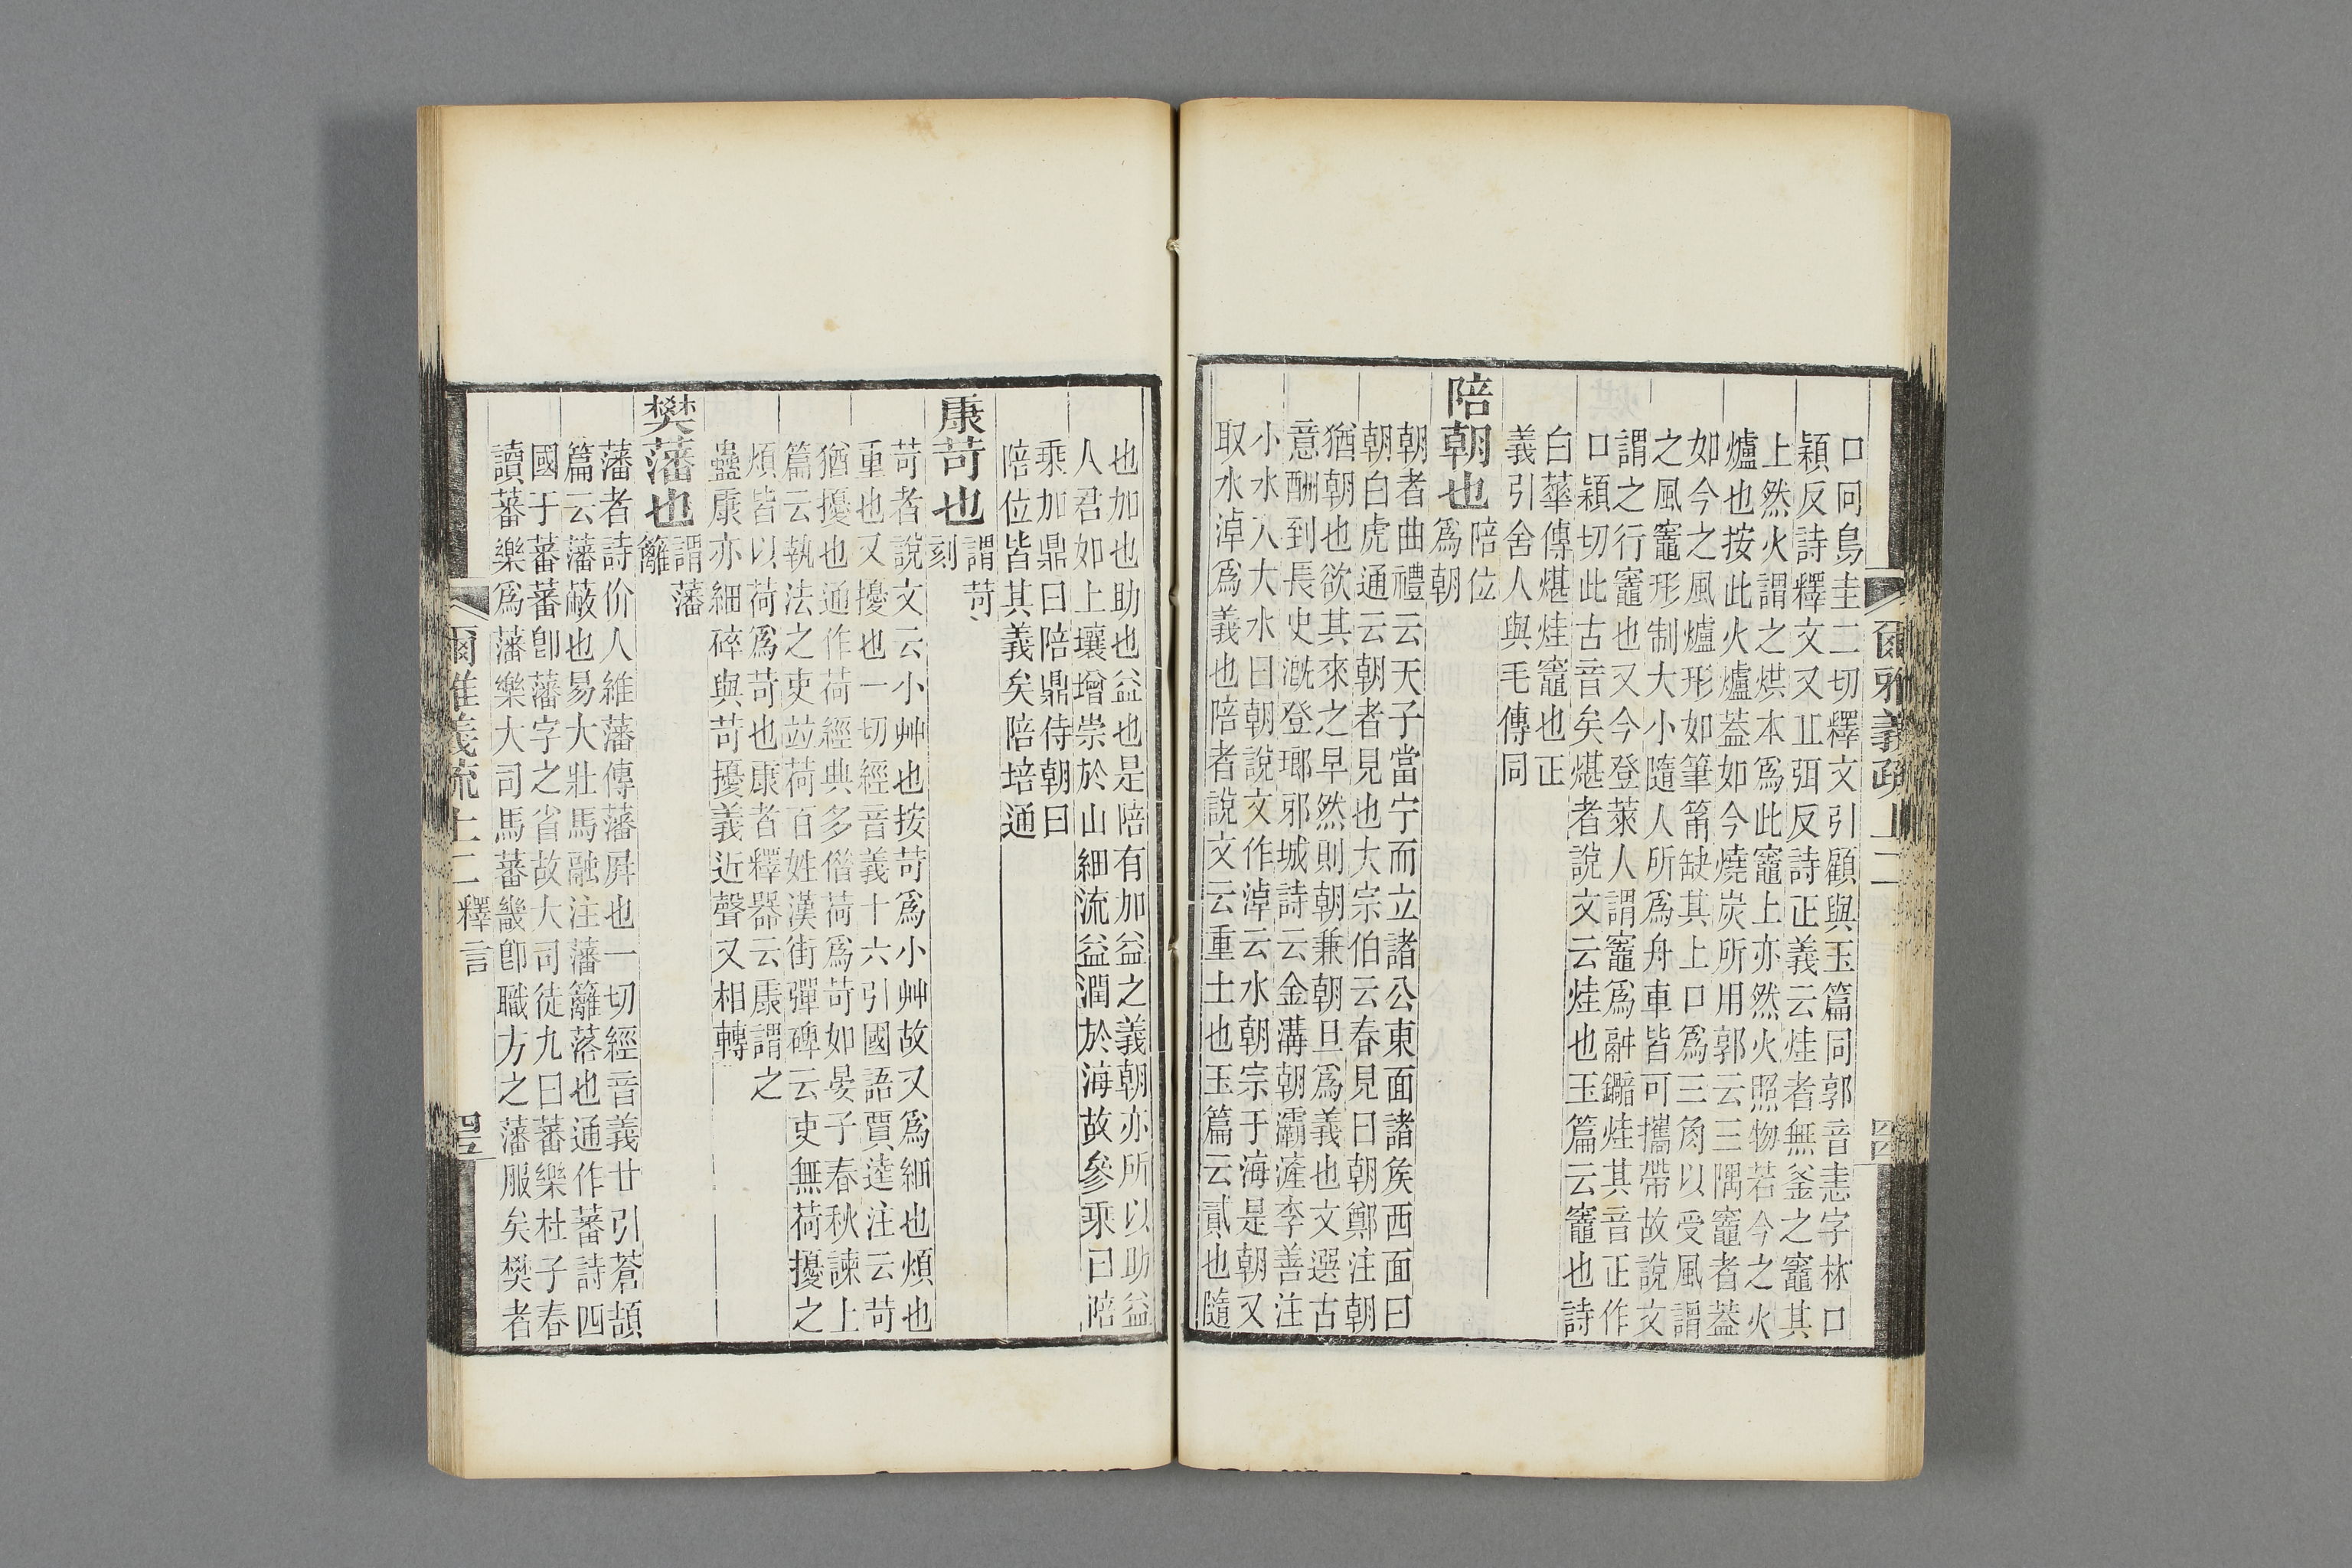 口冋烏圭二切釋文引顧與玉篇同郭音恚字林口
穎反詩釋文又丘弭反詩正義云烓者無釜之竈其
上然火謂之烘本爲此竈上亦然火照物若今之火
爐也按此火爐蓋如今燒炭所用郭云三隅竈者蓋
如今之風爐形如筆筩缺其上口爲三角以受風謂
之風竈形制大小隨人所爲舟車皆可攜帶故說文
謂之行竈也又今登萊人謂竈爲䥯烓其音正作
口穎切此古音矣煁者說文云烓也玉篇云竈也詩
白華傳煁烓竈也正
義引舍人與毛傳同
陪朝也
陪位
爲朝
朝者曲禮云天子當宁而立諸公東面諸矦西面曰
朝白虎通云朝者見也大宗伯云春見曰朝鄭注朝
猶朝也欲其來之早然則朝兼朝旦爲義也文選古
意酬到長史溉登瑯邪城詩云金溝朝灞滻李善注
小水入大水曰朝說文作淖云水朝宗于海是朝又
取水淖爲義也陪者說文云重土也玉篇云貳也隨
也加也助也益也是陪有加益之義朝亦所以助益
人君如上壤增崇於山細流益潤於海故參乘曰陪
乘加鼎曰陪鼎侍朝曰
陪位皆其義矣陪培通
康苛也
謂苛
刻
苛者說文云小艸也按苛爲小艸故又爲細也煩也
重也又擾也一切經音義十六引國語賈逵注云苛
猶擾也通作荷經典多借荷爲苛如晏子春秋諫上
篇云執法之吏竝荷百姓漢街彈碑云吏無荷擾之
煩皆以荷爲苛也康者釋器云康謂之
蠱康亦細碎與苛擾義近聲又相轉
樊藩也
謂藩
籬
藩者詩价人維藩傳藩屛也一切經音義廿引蒼頡
篇云藩蔽也易大壯馬融注藩籬落也通作蕃詩四
國于蕃蕃卽藩字之省故大司徒九曰蕃樂杜子春
讀蕃樂爲藩樂大司馬蕃畿卽職方之藩服矣樊者
爾雅義疏上二 釋言